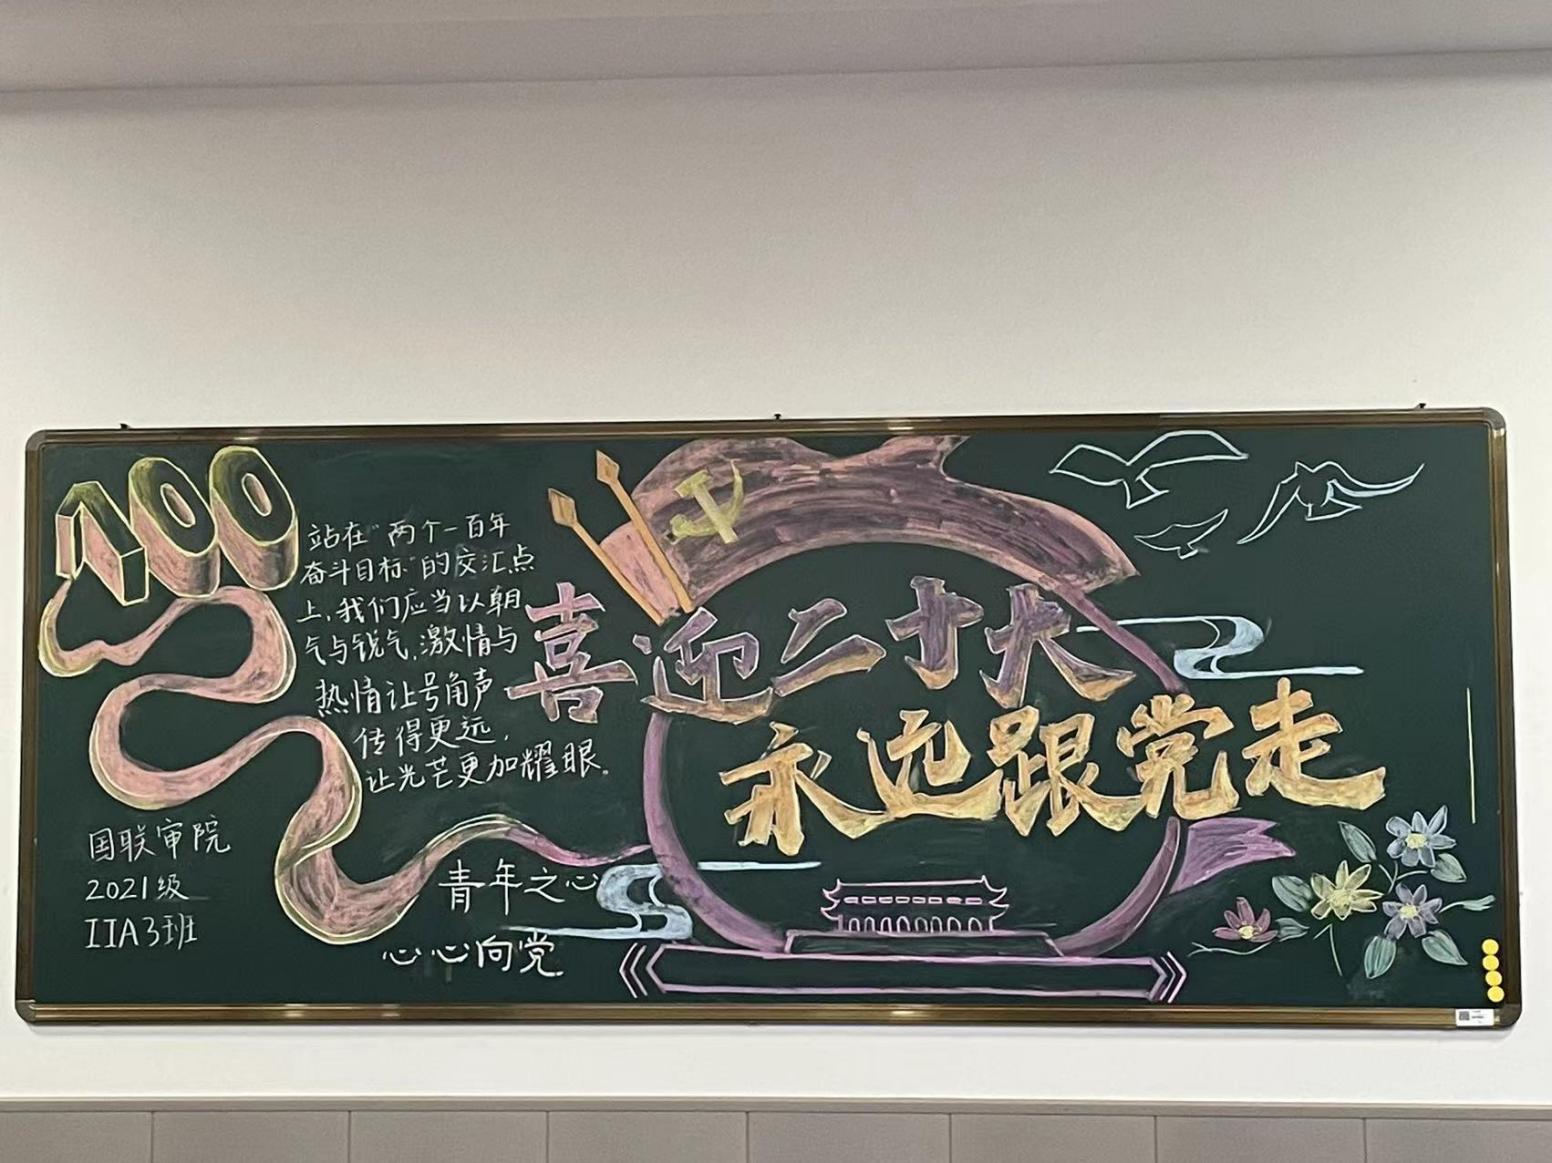 100
站在“两个一百年
奋斗目标”的交汇点
上,我们应当以朝
气与锐气,激情与
热情让号角声
传得更远,
让光芒更加耀眼。
喜迎二十大
永远跟党走
国联审院
2021级
IIA3班
青年之心
心心向党